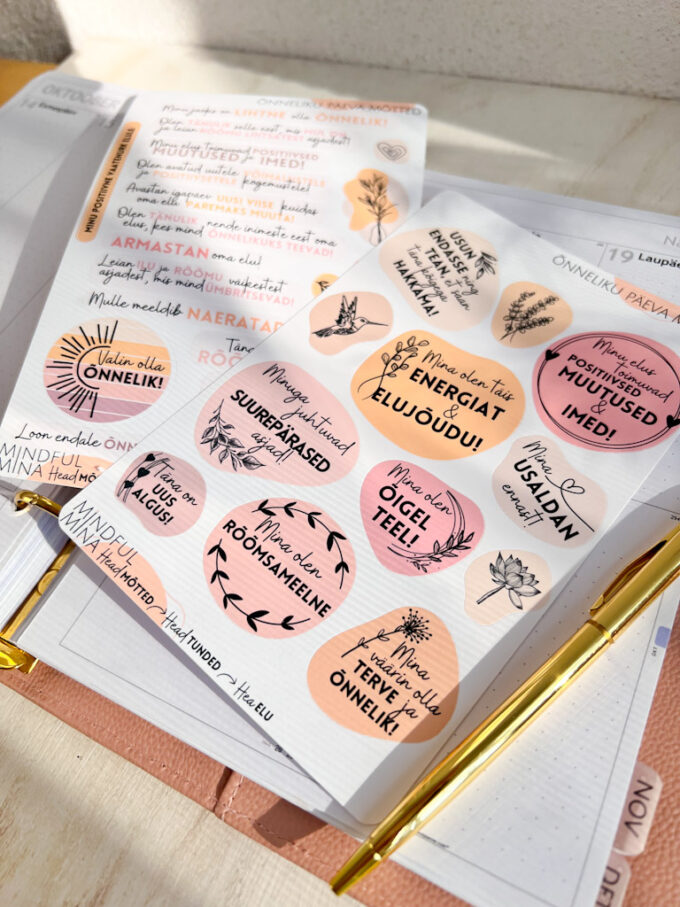 OKTOOBER
14
ÕNNELIKU PÄEVA MÕTTED
MINU POSITIIVNE VAATENURK ELULE
Minu jaoks on LIHTNE olla ÕNNELIK!
Olen TÄNULIK selle eest, mis
ja leian RÕÕMU LIHTSATEST asjadest!
Minu elus toimuvad POSITIIVSED
MUUTUSED ja IMED!
Olen avatud uutele VÕIMALUSTELE
ja POSITIIVSETELE kogemustele!
Avastan igapäev UUSI VIISE, kuidas
oma elu PAREMAKS MUUTA!
Olen TÄNULIK nende inimeste eest oma
elus, kes mind ÕNNELIKUKS TEEVAD!
ARMASTAN oma elu!
Leian ILU ja RÕÕMU väikestest
asjadest, mis mind ÜMBRITSEVAD!
Mulle meeldib NAERATA
Valin olla
ÕNNELIK!
Loon endale ÕNN
MINDFUL
MINA Head MÕ
19 Laupäe
ÕNNELIKU PÄEVA M
USUN
ENDASSE ning
TEAN, et saan
tänu kõigega
HAKKAMA!
Mina olen täis
ENERGIAT
&
ELUJÕUDU!
Minu elus
toimuvad
POSITIIVSED
MUUTUSED
&
IMED!
Minuga
juhtuvad
SUUREPÄRASED
asjad!
Mina
USALDAN
ennast!
Mina olen
ÕIGEL
TEEL!
Täna on
UUS
ALGUS!
Mina olen
RÕÕMSAMEELNE
Mina
väärin olla
TERVE ja
ÕNNELIK!
MINDFUL
MINA Head MÕTTED
Head TUNDED
Hea ELU
OKT
NOV
DET